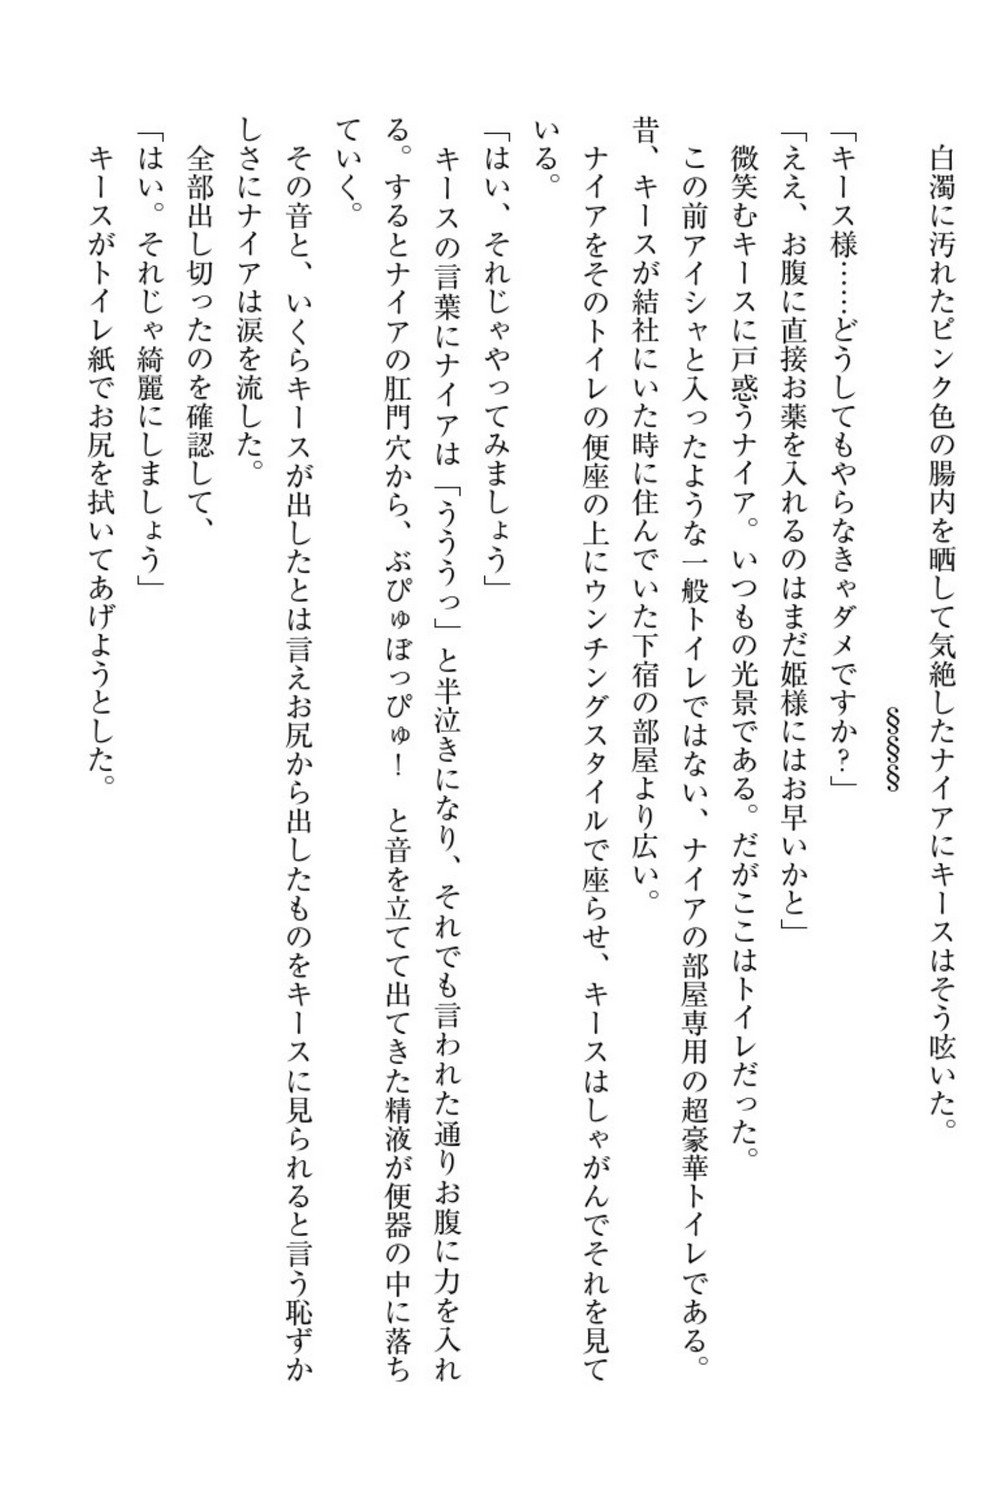 白濁に汚れたピンク色の腸内を晒して気絶したナイアにキースはそう呟いた。
§§§§
「キース様……どうしてもやらなきゃダメですか？」
「ええ、お腹に直接お薬を入れるのはまだ姫様にはお早いかと」
微笑むキースに戸惑うナイア。いつもの光景である。だがここはトイレだった。
この前アイシャと入ったような一般トイレではない、ナイアの部屋専用の超豪華トイレである。
昔、キースが結社にいた時に住んでいた下宿の部屋より広い。
ナイアをそのトイレの便座の上にウンチングスタイルで座らせ、キースはしゃがんでそれを見て
いる。
「はい、それじゃやってみましょう」
キースの言葉にナイアは「うううっ」と半泣きになり、それでも言われた通りお腹に力を入れ
る。するとナイアの肛門穴から、ぶぴゅぼっぴゅ！　と音を立てて出てきた精液が便器の中に落ち
ていく。
その音と、いくらキースが出したとは言えお尻から出したものをキースに見られると言う恥ずか
しさにナイアは涙を流した。
全部出し切ったのを確認して、
「はい。それじゃ綺麗にしましょう」
キースがトイレ紙でお尻を拭いてあげようとした。